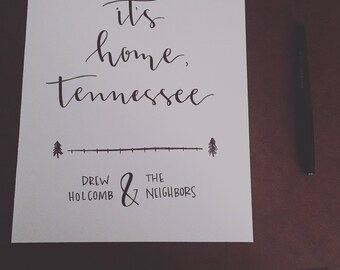 it's
home,
tennessee
DREW & THE
HOLCOMB NEIGHBORS